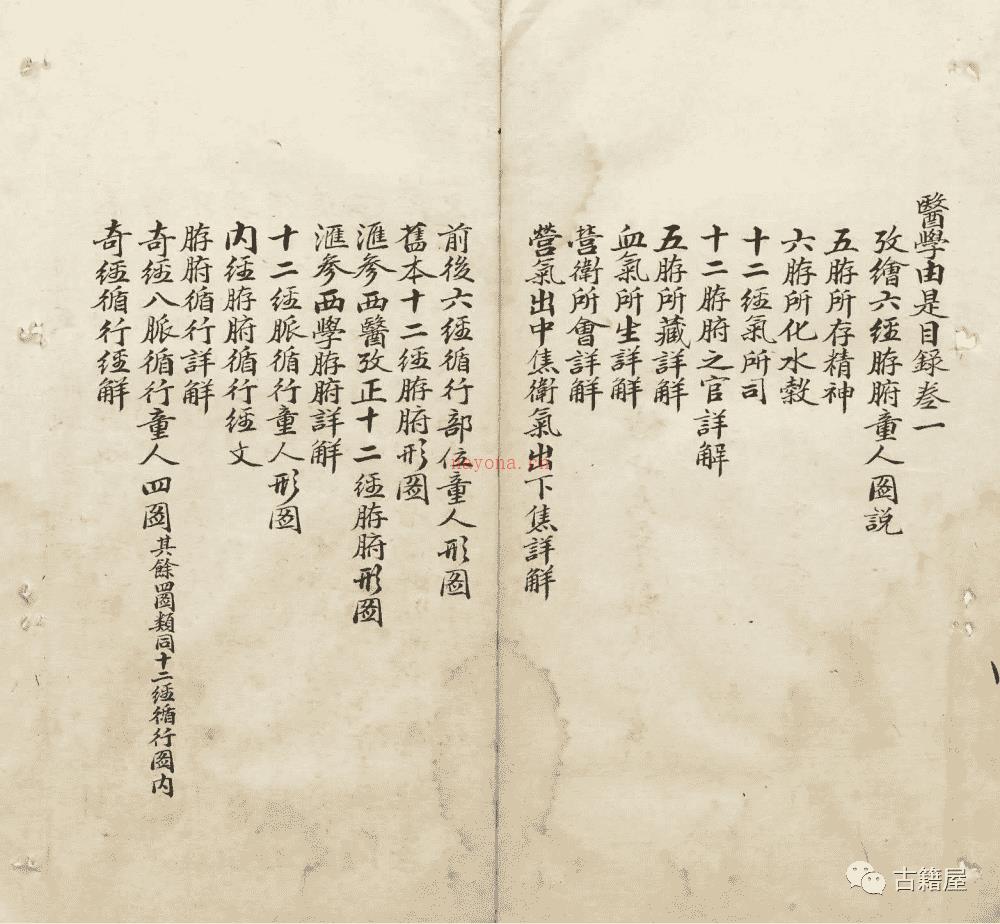 醫學由是目錄叁一
攷繪六經脏腑童人圖説
五脏所存精神
六脏所化水穀
十二經氣所司
十二脏腑之官詳解
五脏所藏詳解
血氣所生詳解
營衛所會詳解
營氣出中焦衛氣出下焦詳解
前後六經循行部位童人形圖
舊本十二經脏腑形圖
滙參西醫攷正十二經脏腑形圖
滙參西學脏腑詳解
十二經脈循行童人形圖
内經脏腑循行經文
脏腑循行詳解
奇經八脈循行童人四圖其餘四圖類同十二經循行圖内
奇經循行經解
nayona.cn
古籍屋